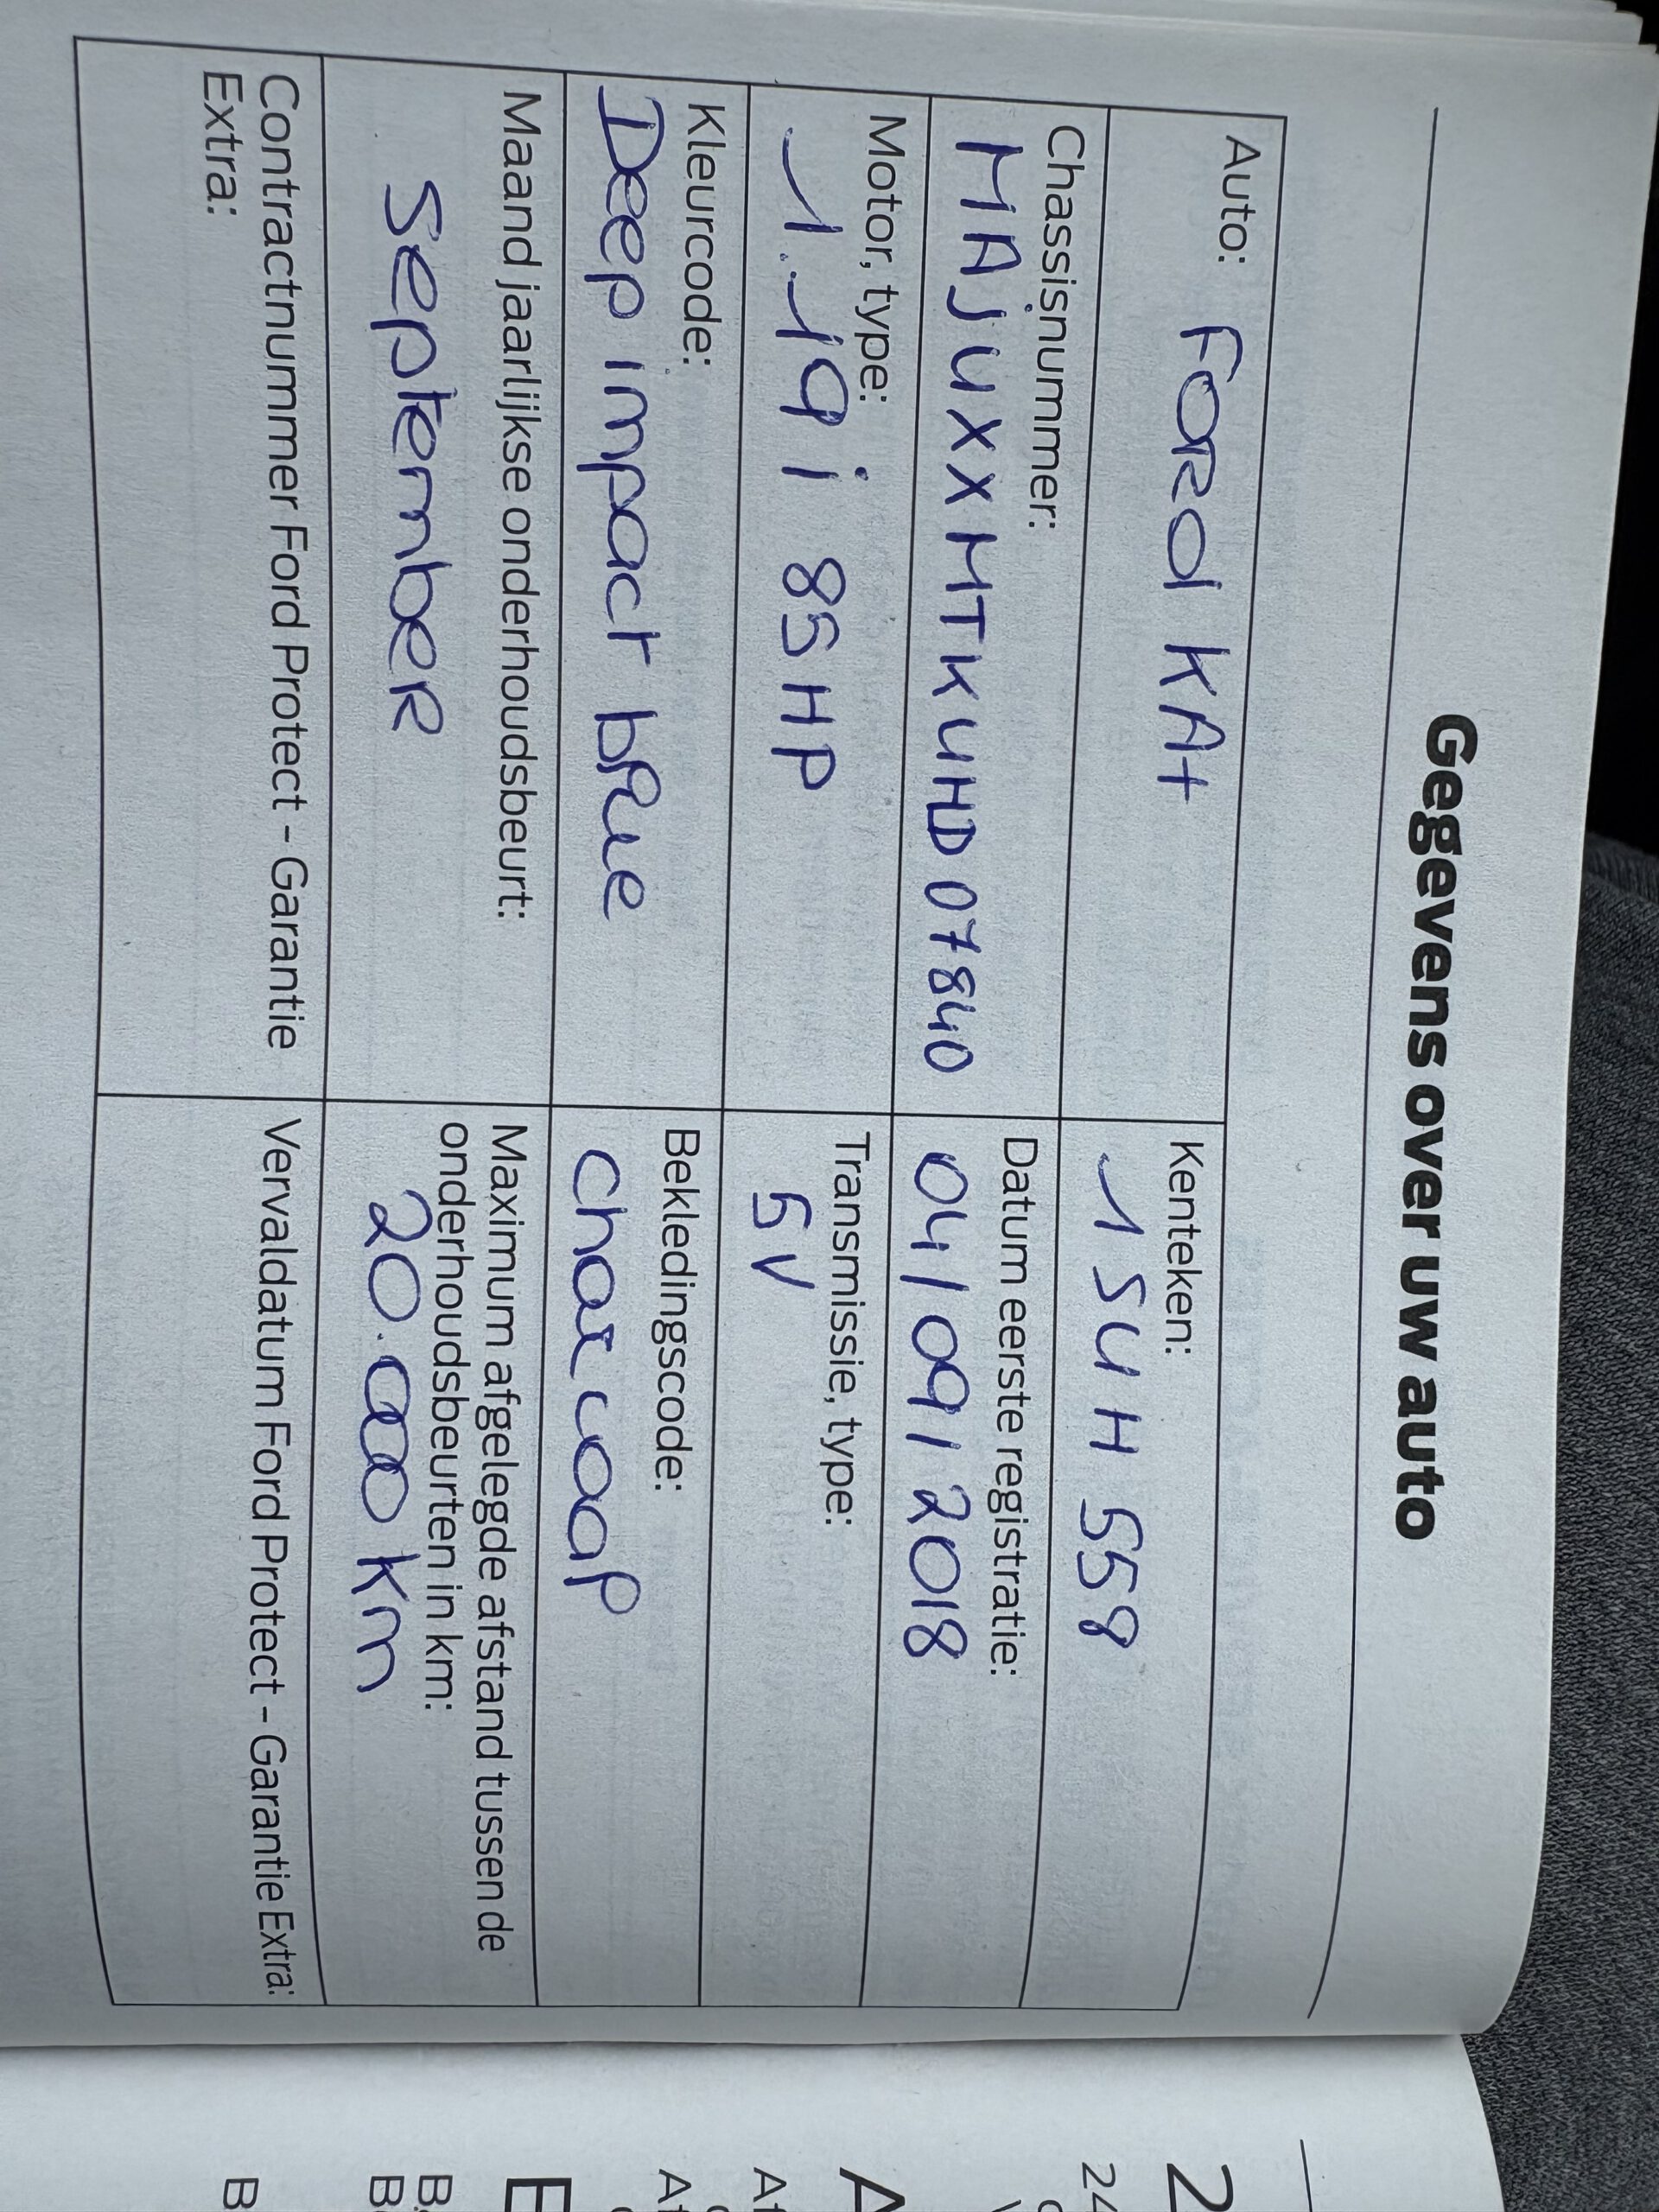 Gegevens over uw auto
Auto: Ford KA+
Kenteken:
1 SUH 558
Chassisnummer:
MAJUXXMTKUHD07840
Datum eerste registratie:
04/09/2018
Motor, type:
1.19i 85HP
Transmissie, type:
5V
Kleurcode:
Deep impact blue
Bekledingscode:
charcoal
Maand jaarlijkse onderhoudsbeurt:
September
Maximum afgelegde afstand tussen de
onderhoudsbeurten in km:
20.000 km
Contractnummer Ford Protect - Garantie
Extra:
Vervaldatum Ford Protect - Garantie Extra: